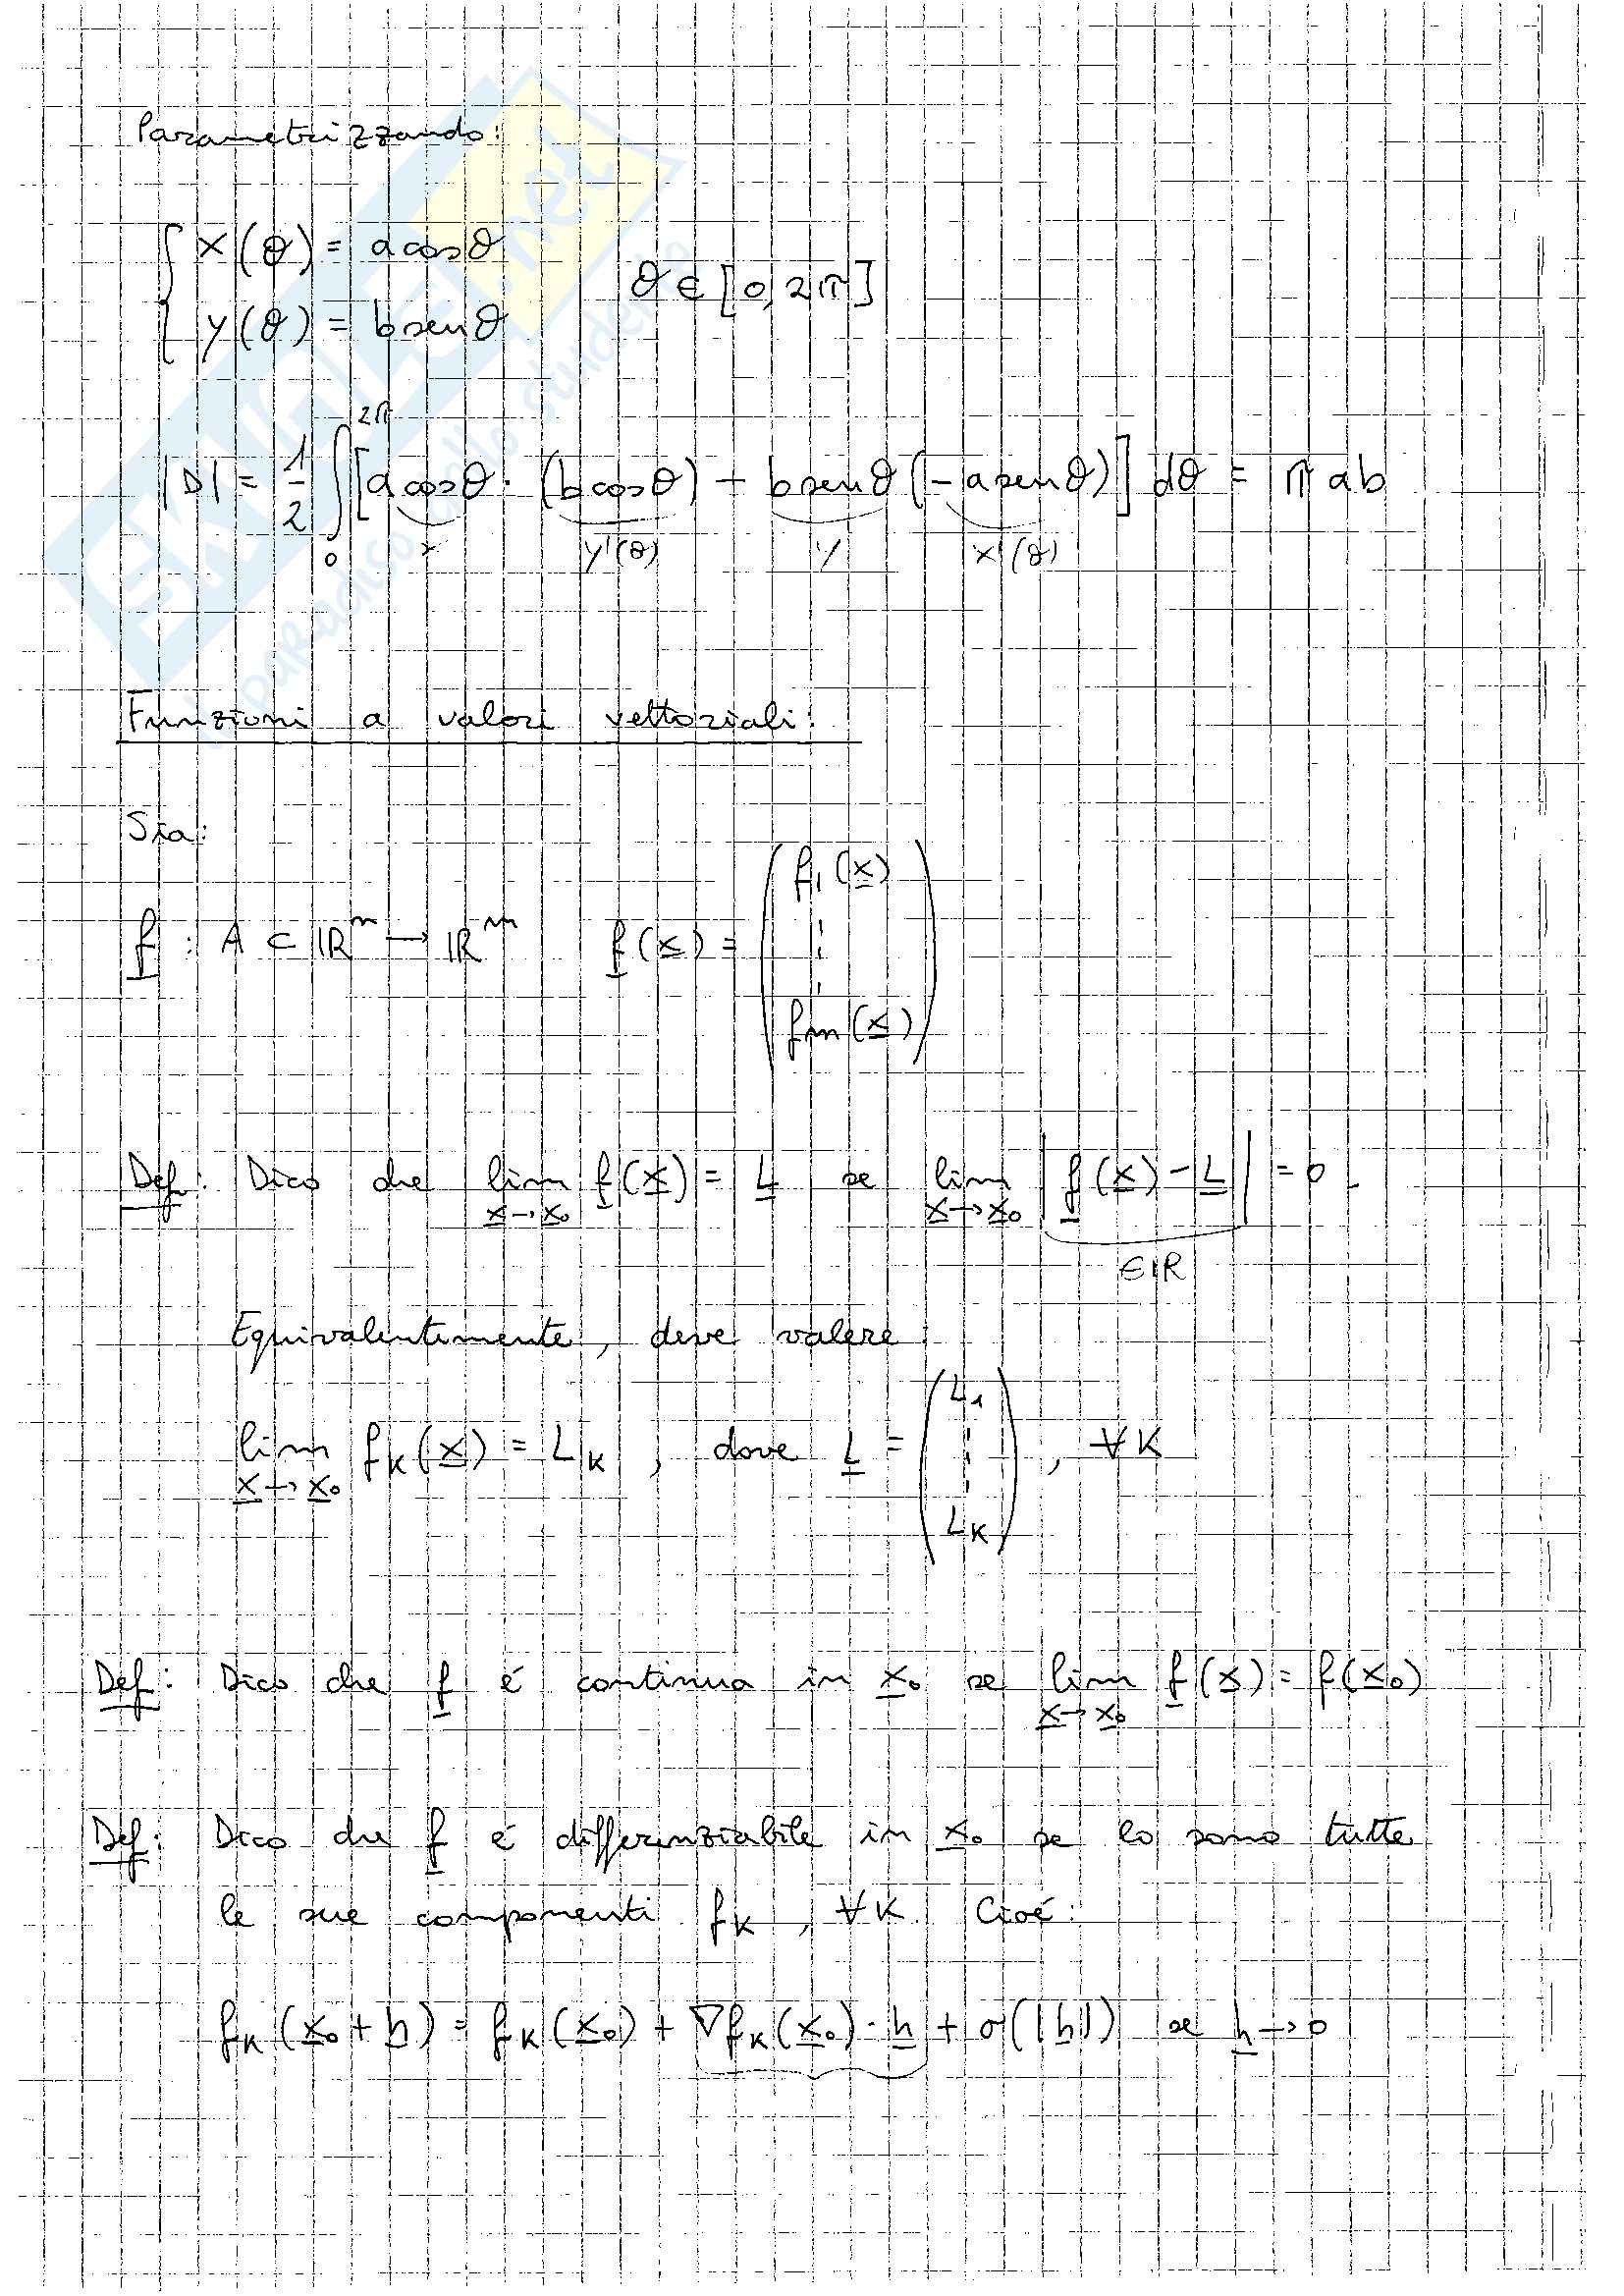 Parametrizzando:
{ x(θ) = a cosθ
{ y(θ) = b senθ
θ ∈ [0, 2π]
|D| = 1/2 ∫₀^2π [a cosθ · (b cosθ) + b senθ (-a senθ)] dθ = π ab
x y'(θ) y x'(θ)
Funzioni a valori vettoriali:
Sia:
f : A ⊂ ℝⁿ → ℝᵐ f(x) = ( f₁(x) ⋮ fm(x) )
Def: Dico che lim x→x₀ f(x) = L se lim x→x₀ |f(x) - L| = 0.
∈ ℝ
Equivalentemente, deve valere:
lim x→x₀ fK(x) = LK, dove L = ( L₁ ⋮ LK ), ∀K
Def: Dico che f é continua in x₀ se lim x→x₀ f(x) = f(x₀)
Def: Dico che f é differenziabile in x₀ se lo sono tutte
le sue componenti fK, ∀K. Cioé:
fK(x₀ + h) = fK(x₀) + ∇fK(x₀) · h + o(|h|) se h → 0